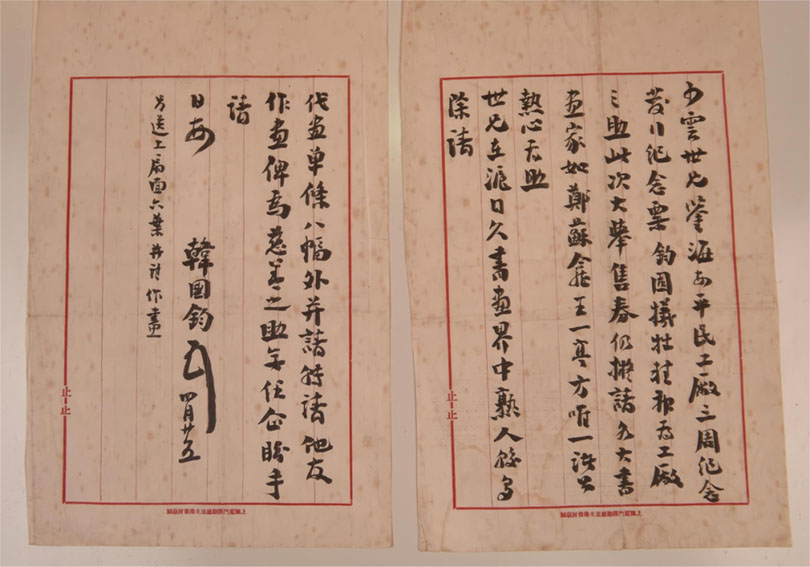 少雲世兄鑒海安平民工廠三周紀念
發行紀念票鈞因犧牲為工廠
之助此次大舉售券仍擬請各大書
畫家如鄭蘇龕王一亭方唯一諸公
熱心為助
世兄在滬日久書畫界中熟人多
除請
止止
代畫單條八幅外并請轉請他友
作畫俾為慈善之助無任企盼手
請
日安
韓國鈞 四月廿五
另送上扇面六葉并請作畫
止止